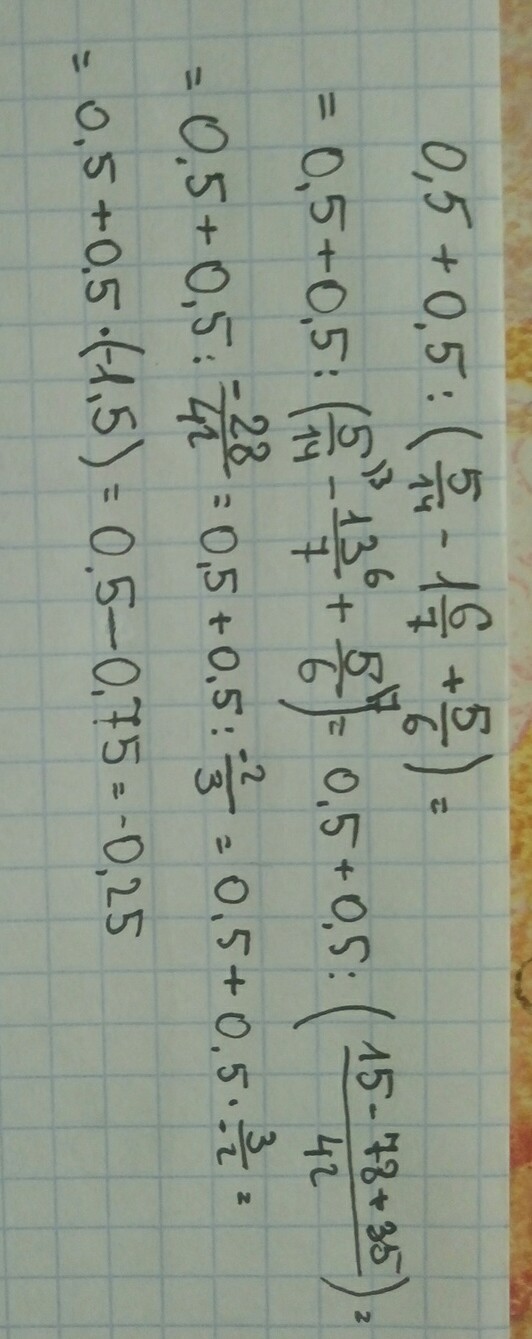 0,5 + 0,5 : (5/14 - 1 6/7 + 5/6) =
= 0,5 + 0,5 : (5/14 \3 - 13/7 6 + 5/6 \7) = 0,5 + 0,5 : ((15 - 78 + 35)/42) =
= 0,5 + 0,5 : -28/42 = 0,5 + 0,5 : -2/3 = 0,5 + 0,5 · 3/-2 =
= 0,5 + 0,5 · (-1,5) = 0,5 - 0,75 = -0,25